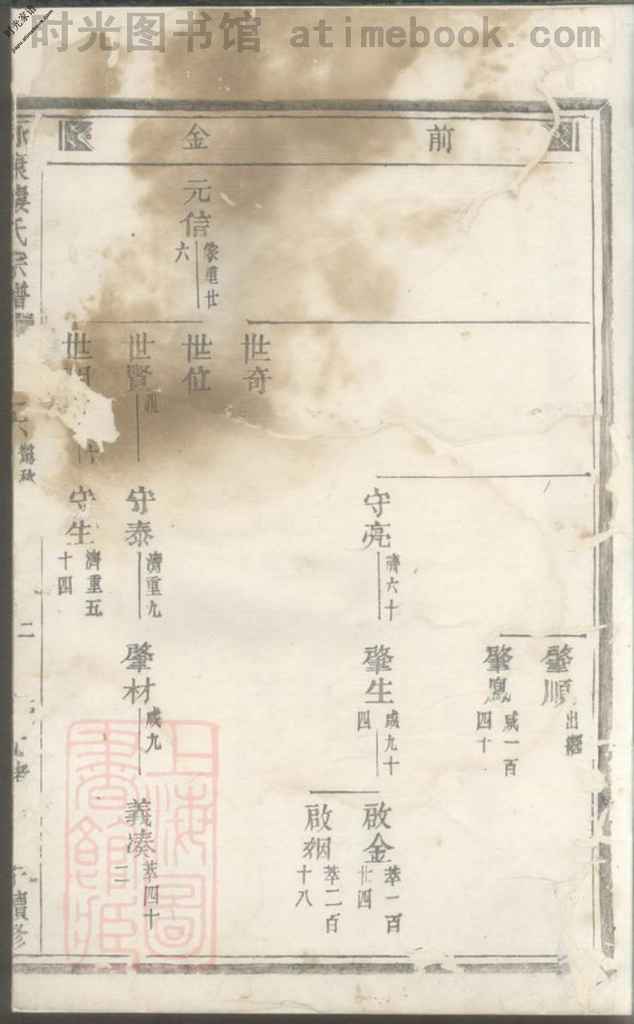 时光图书馆 atimebook.com
前
金
元信
六
世奇
世位
世賢
世
守亮
六十
守泰
濟重九
守生
濟重五
十四
肇順
出繼
肇
咸一百
四十
肇生
咸九十
四
肇材
咸九
啟金
萃一百
廿四
啟
萃二百
十八
義湊
萃四十
二
氏宗譜
二
續修
上海圖
書館藏